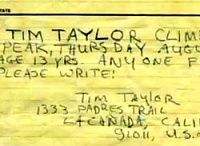 TIM TAYLOR CLIM
PEAK, THURSDAY AUGU
AGE 13 YRS. ANY ONE F
PLEASE WRITE!
TIM TAYLOR
1333 PADRES TRAIL
LA CANADA, CALI
91011, U.S.